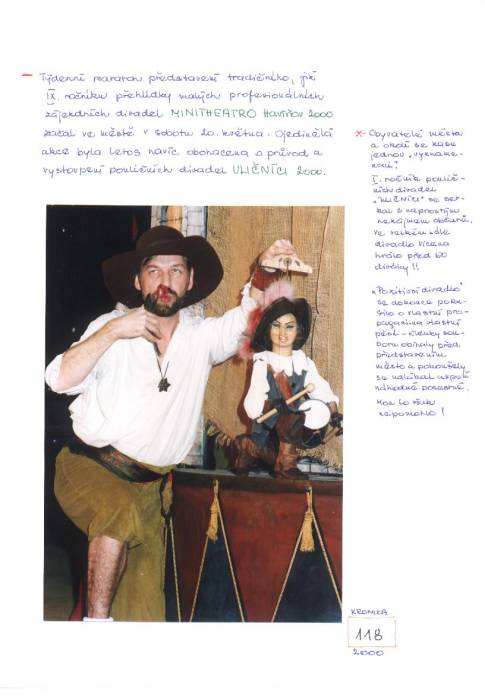 – Týdenní maraton představení tradičního, již
IX. ročníku přehlídky malých profesionálních
zájezdních divadel MINITHEATRO Havířov 2000
začal ve městě v sobotu 20. května. Ojedinělá
akce byla letos navíc obohacena o průvod a
vystoupení pouličních divadel ULIČNÍCI 2000.
x- Obyvatelé města
a okolí se zase
jednou „vyzname-
nali"
I. ročník poulič-
ních divadel
„ULIČNÍCI" se set-
kal s naprostým
nezájmem občanů,
ve velkém sále
divadlo Vizita
hrálo před 60
diváky!!
„Pozitivní divadlo"
se dokonce poku-
silo o vlastní pro-
pagandu vlastní
pěstí - členky sou-
boru obíhaly před
představením
město a pokoušely
se nalákat aspoň
náhodné pocestné.
Moc to však
nepomohlo!
KRONIKA
118
2000